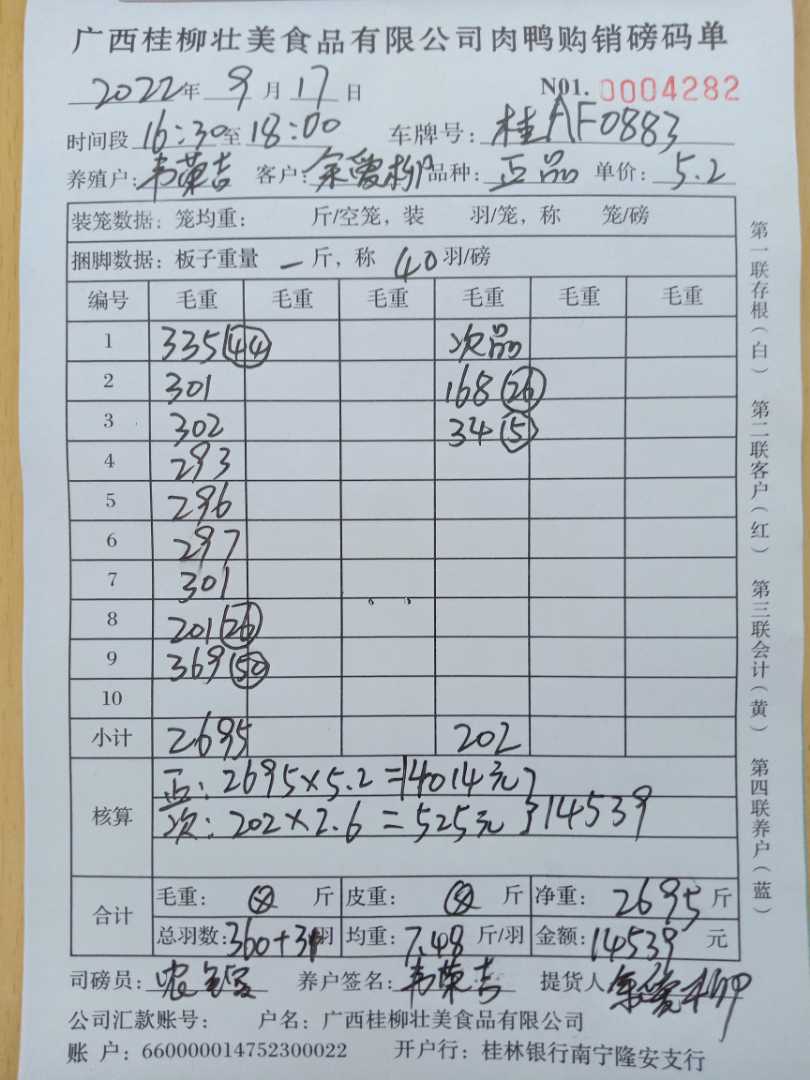 广西桂柳壮美食品有限公司肉鸭购销磅码单
2022年 9月 17日 N01. 0004282
时间段 16:30 至 18:00 车牌号: 桂AF0883
养殖户: 韦荣吉 客户: 余爱柳 品种: 正品 单价: 5.2
装笼数据: 笼均重: 斤/空笼, 装 羽/笼, 称 笼/磅
捆脚数据: 板子重量 一 斤, 称 40 羽/磅
编号 毛重 毛重 毛重 毛重 毛重 毛重
1 335(44) 次品
2 301 168(26)
3 302 34(5)
4 293
5 296
6 297
7 301
8 201(26)
9 369(50)
10
小计 2695 202
核算 正: 2695×5.2=14014元
次: 202×2.6=525元 }14539
合计 毛重: 斤 皮重: 斤 净重: 2695 斤
总羽数: 360+31羽 均重: 7.48 斤/羽 金额: 14539 元
司磅员: 养户签名: 韦荣吉 提货人 余爱柳
公司汇款账号: 户名: 广西桂柳壮美食品有限公司
账 户: 660000014752300022 开户行: 桂林银行南宁隆安支行
第一联存根(白) 第二联客户(红) 第三联会计(黄) 第四联养户(蓝)